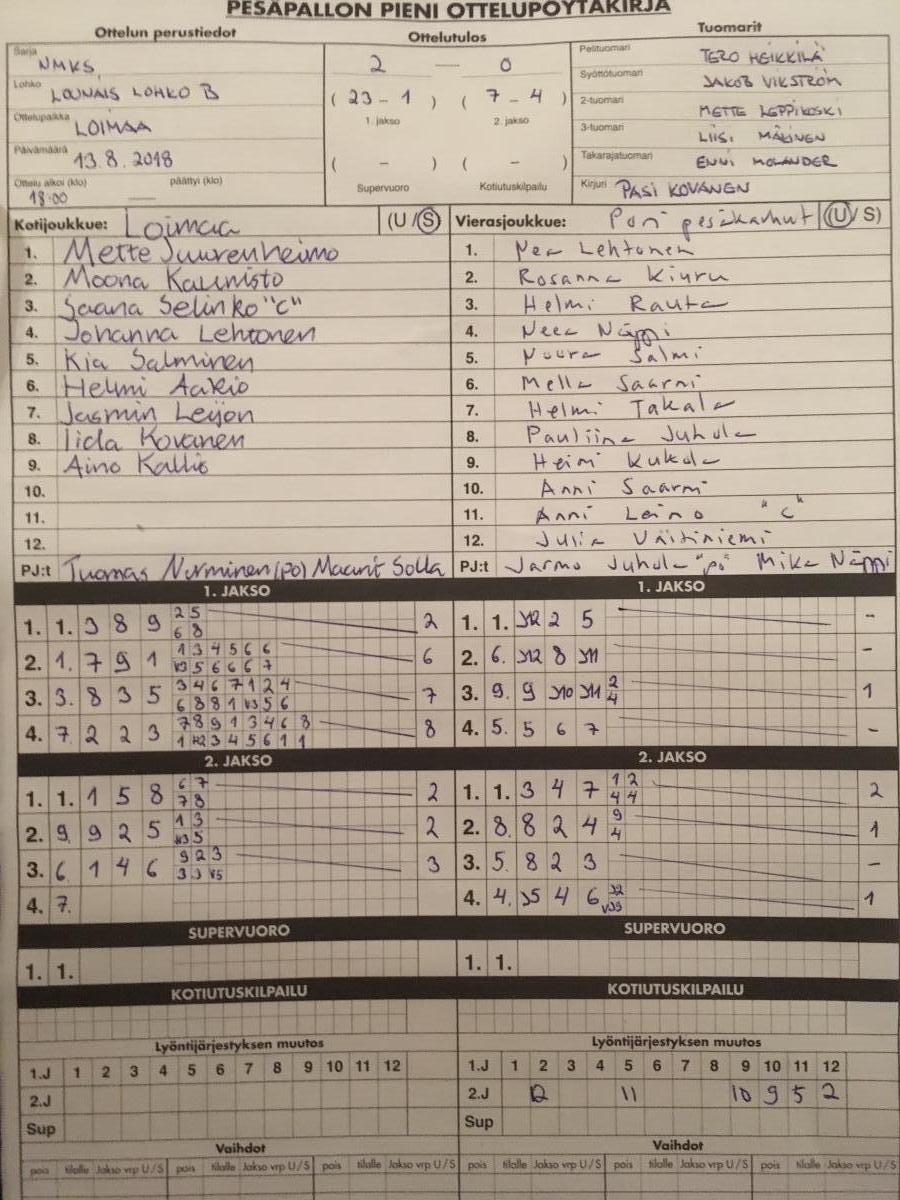 PESÄPALLON PIENI OTTELUPÖYTÄKIRJA
Ottelun perustiedot
Sarja
NMKS
Lohko
LOUNAIS LOHKO B
Ottelupaikka
LOIMAA
Päivämäärä
13.8.2018
Ottelu alkoi (klo) päättyi (klo)
18:00 —
Ottelutulos
2 — 0
( 23 - 1 ) ( 7 - 4 )
1. jakso 2. jakso
( - ) ( - )
Supervuoro Kotiutuskilpailu
Tuomarit
Pelituomari TERO HEIKKILÄ
Syöttötuomari JAKOB VIKSTRÖM
2-tuomari METTE LEPPIKOSKI
3-tuomari LIISI MÄKINEN
Takarajatuomari ENNI MOLANDER
Kirjuri PASI KOVANEN
Kotijoukkue: Loimaa (U/S)
1. Mette Juurenheimo
2. Moona Kaunisto
3. Saana Selinko "C"
4. Johanna Lehtonen
5. Kia Salminen
6. Helmi Aakio
7. Jasmin Leijon
8. Iida Kovanen
9. Aino Kallio
10.
11.
12.
PJ:t Tuomas Nurminen (po) Maarit Solla
Vierasjoukkue: Pori pesäkarhut (U/S)
1. Nea Lehtonen
2. Rosanna Kiuru
3. Helmi Rauta
4. Neea Näppi
5. Noora Salmi
6. Mella Saarni
7. Helmi Takala
8. Pauliina Juhola
9. Heini Kukola
10. Anni Saarni
11. Anni Leino "C"
12. Julia Väitiniemi
PJ:t Jarmo Juhola "pö" Mika Näppi
1. JAKSO
1. 1. 3 8 9 2 5 2
6 8
2. 1. 7 9 1 1 3 4 5 6 6 6
V3 5 6 6 6 7
3. 3. 8 3 5 3 4 6 7 1 2 4 7
6 8 8 1 V3 5 6
4. 7. 2 2 3 7 8 9 1 3 4 6 8 8
1 3 4 5 6 1 1
1. JAKSO
1. 1. J12 2 5 -
2. 6. J12 8 J11 -
3. 9. 9 J10 J11 2 1
4
4. 5. 5 6 7 -
2. JAKSO
1. 1. 1 5 8 6 7 2
7 8
2. 9. 9 2 5 1 3 2
V3 5
3. 6. 1 4 6 9 2 3 3
3 3 V5
4. 7.
2. JAKSO
1. 1. 3 4 7 1 2 2
4 4
2. 8. 8 2 4 9 1
4
3. 5. 8 2 3 -
4. 4. J5 4 6 J2 1
SUPERVUORO
1. 1.
SUPERVUORO
1. 1.
KOTIUTUSKILPAILU
KOTIUTUSKILPAILU
Lyöntijärjestyksen muutos
1.J 1 2 3 4 5 6 7 8 9 10 11 12
2.J
Sup
Lyöntijärjestyksen muutos
1.J 1 2 3 4 5 6 7 8 9 10 11 12
2.J 12 11 10 9 5 2
Sup
Vaihdot
pois tilalle Jakso vrp U/S pois tilalle Jakso vrp U/S pois tilalle Jakso vrp U/S
Vaihdot
pois tilalle Jakso vrp U/S pois tilalle Jakso vrp U/S pois tilalle Jakso vrp U/S